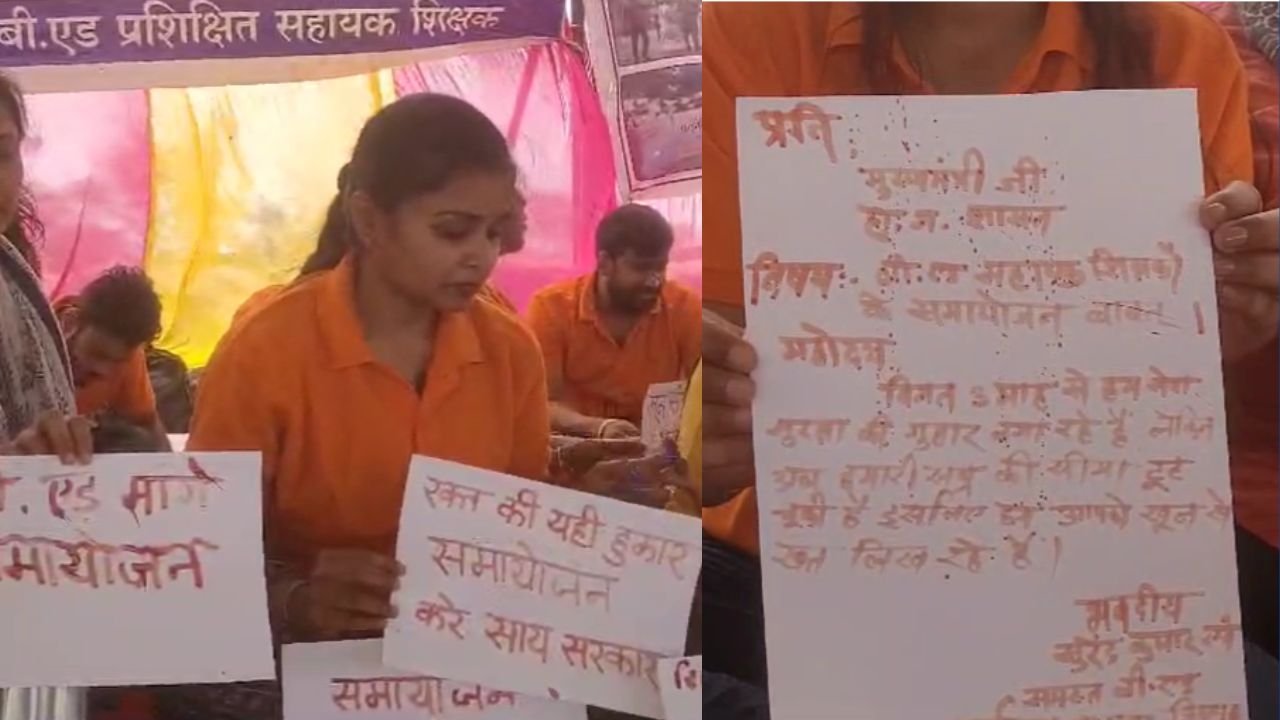 बी.एड प्रशिक्षित सहायक शिक्षक
. एड मांगे
मायोजन
रक्त की यही हुंकार
समायोजन
करे साय सरकार
समायोजन
प्रति,
मुख्यमंत्री जी
छ.ग. शासन
विषय:- बी.एड सहायक शिक्षकों
के समायोजन बाबत् ।
महोदय
विगत 5 माह से हम सेवा
सुरक्षा की गुहार लगा रहे हैं लेकिन
अब हमारी सब्र की सीमा टूट
चुकी है इसलिए हम आपको खून से
खत लिख रहे हैं ।
भवदीय
कुमार
समस्त बी.एड